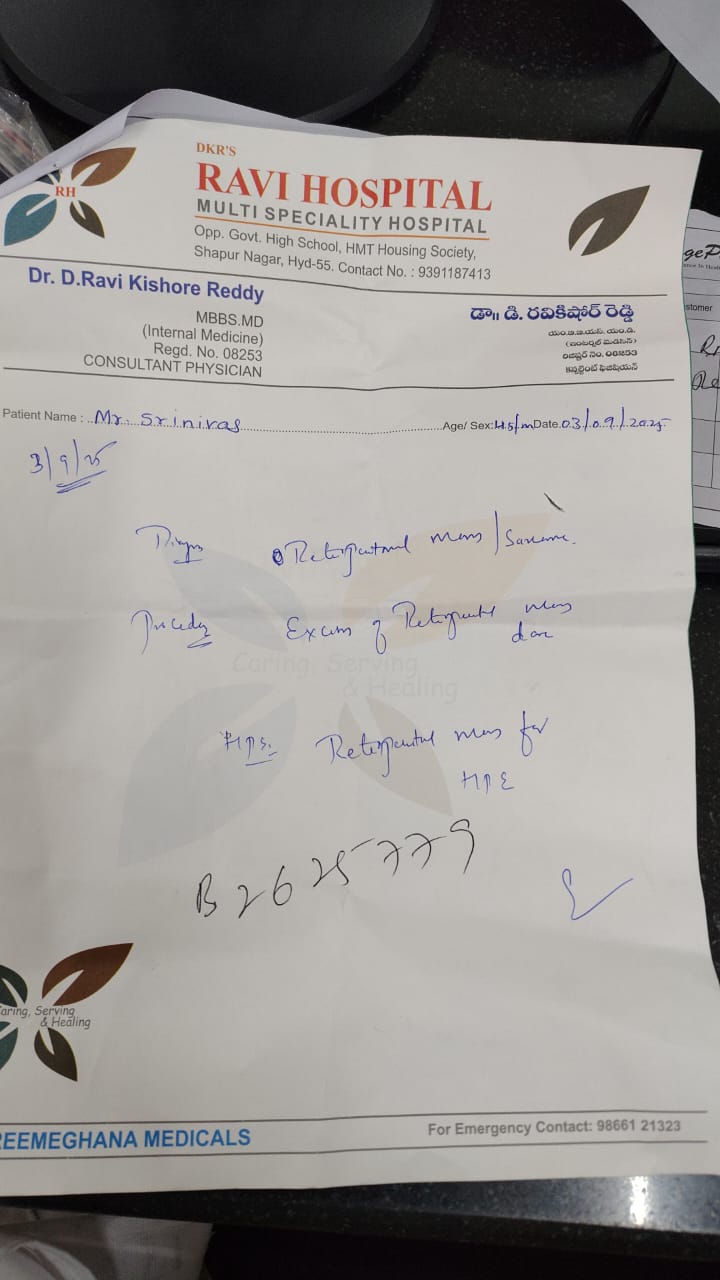 DKR'S
RAVI HOSPITAL
MULTI SPECIALITY HOSPITAL
Opp. Govt. High School, HMT Housing Society,
Shapur Nagar, Hyd-55. Contact No. : 9391187413
RH
Dr. D.Ravi Kishore Reddy
MBBS.MD
(Internal Medicine)
Regd. No. 08253
CONSULTANT PHYSICIAN
డా॥ డి. రవికిషోర్ రెడ్డి
యం.బి.బి.యస్. యం.డి.
(ఇంటర్నల్ మెడిసిన్)
రిజిష్టర్ నెం. 08253
కన్సల్టెంట్ ఫిజిషియన్
Patient Name : Mr. Srinivas Age/ Sex: 45/m Date. 03/09/2025
3/9/25
Retroperitoneal mass / Sarcoma.
Excision of Retroperitoneal mass
done
Caring, Serving
& Healing
Retroperitoneal mass for
HPE
B2625779
aring, Serving
& Healing
REEMEGHANA MEDICALS
For Emergency Contact: 98661 21323
stomer